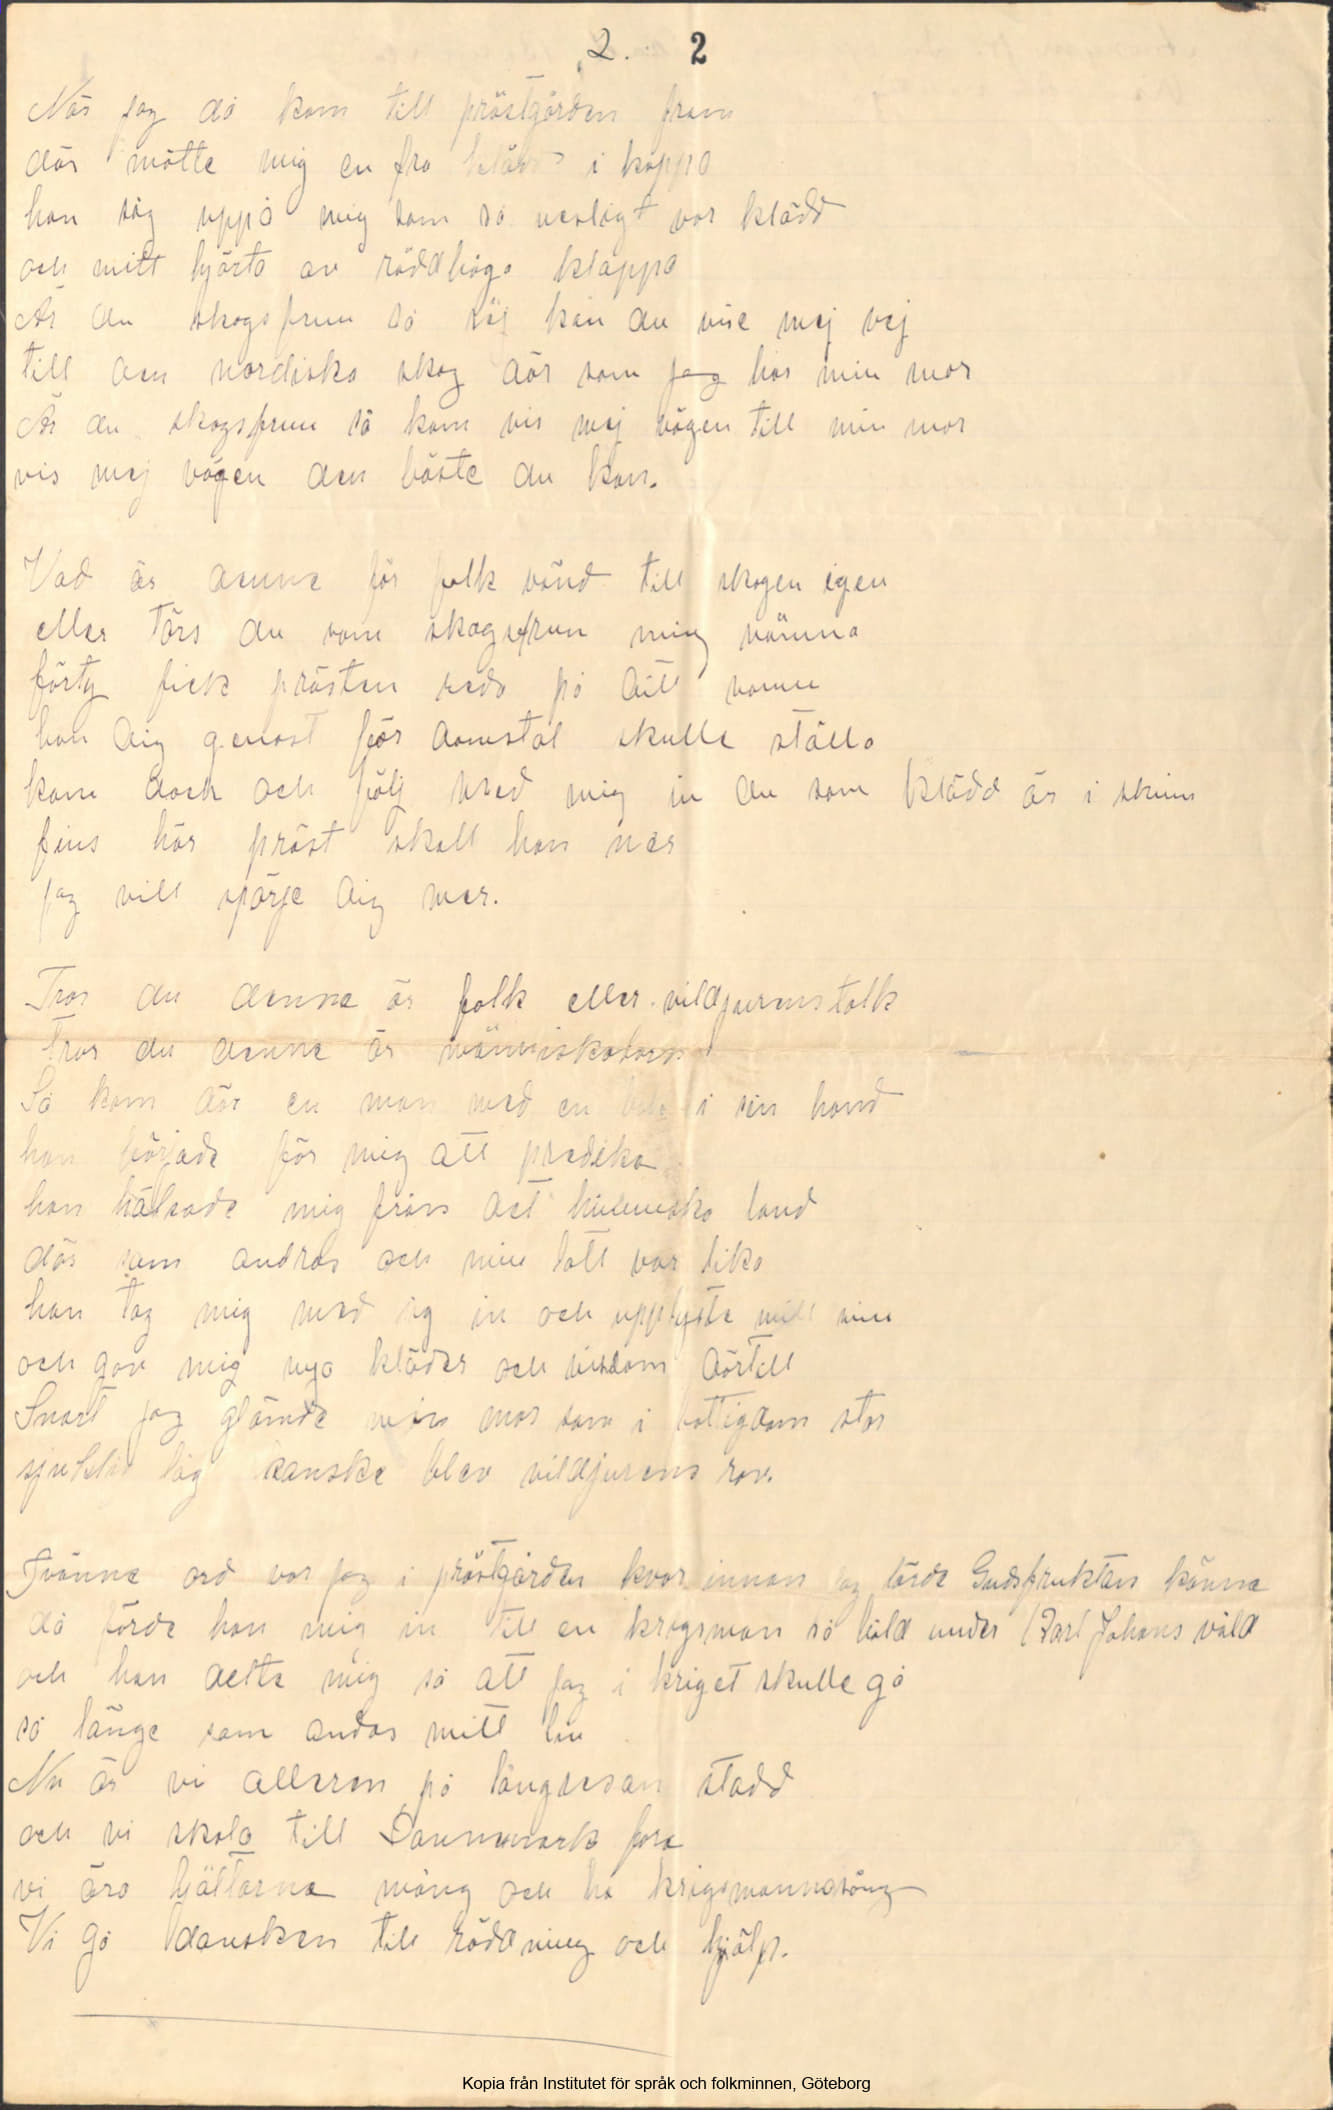 2. 2
När jag då kom till prästgården fram
där mötte mig en fru klädd i kappa
hon såg uppå mig som så uselligt var klädd
och mitt hjärta av räddhåga klappa
Är du skogsfrun så säj kan du vise mej vej
till den nordiska skog där som jag har min mor
Är du skogsfrun så kom vis mej vägen till min mor
vis mej vägen den bäste du kan.
Vad är denne för folk vänd till skogen igen
eller Törs du som skogsfrun mig nämna
förty fick prästen reda på ditt namn
han dig genast för domstol skulle ställa
kom dock och följ med mig in du som klädd är i skinn
fins här präst skall han ner
jag vill spörje dig mer.
Tror du denne är folk eller vildjurens tolk
tror du denne är människobarn
Så kom där en man med en bok i sin hand
han började för mig att predika
han hälsade mig från det himmelska land
där som andras och min lott var lika
han tog mig med sig in och upplyste mitt sinn
och gav mig nya kläder och visdom därtill
Snart jag glömde min mor som i fattigdom stor
sjuklig låg kanske blev vildjurens rov.
Tvänne ord var jag i prästgården kvar innan jag lärde Gudsfruktan känna
då förde han mig in till en krigsman så båld under Karl Johans våld
och han dette mig så att jag i kriget skulle gå
så länge som andas mitt liv
Nu är vi alleren på långresan stadd
och vi skola till Dannmark fara
vi äro hjältarna mång och ha krigsmannasång
Vi gå dansken till räddning och hjälp.
Kopia från Institutet för språk och folkminnen, Göteborg